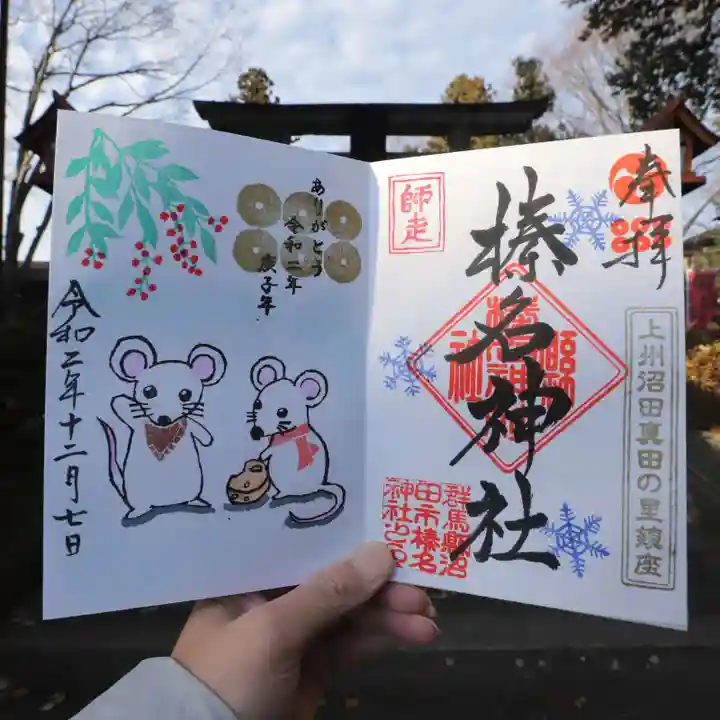 奉拝
師走
榛名神社
上州沼田真田の里鎮座
群馬縣沼
田市榛名
神社之印
ありがとう
令和二年
庚子年
令和二年十二月七日